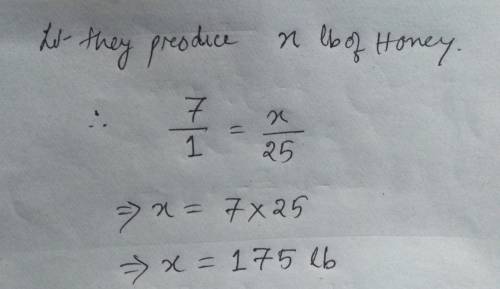 Let they produce x lb of Honey.
∴ 7/1 = x/25
⇒ x = 7×25
⇒ x = 175 lb